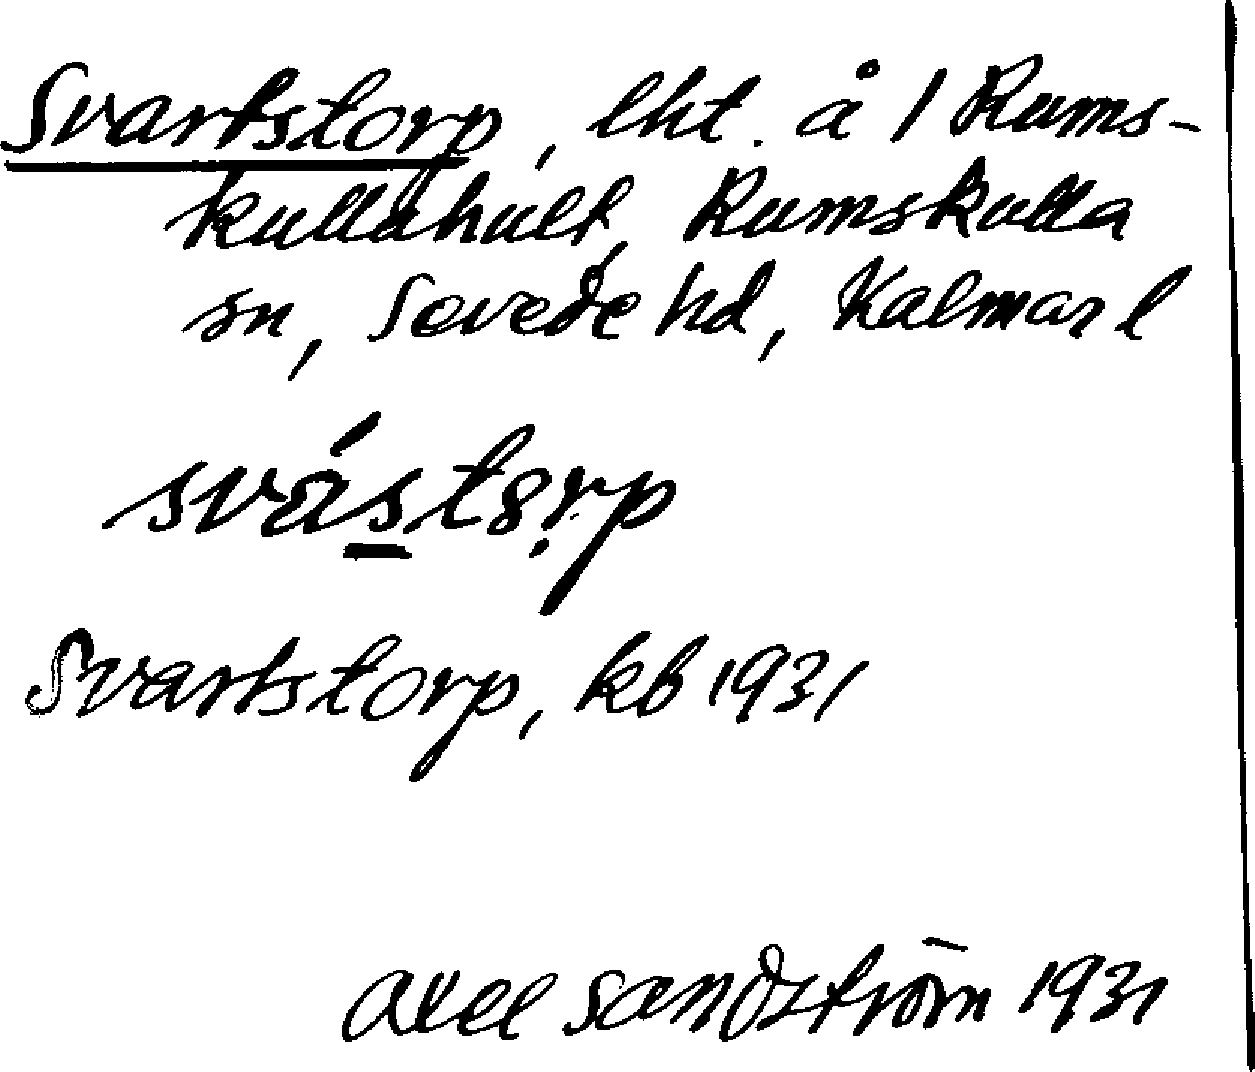 Svartstorp, lht. å 1 Rums-
kullahult, Rumskulla
sn, Sevede hd, Kalmar l
svást8rp
Svartstorp, kb 1931
Axel Sandström 1931